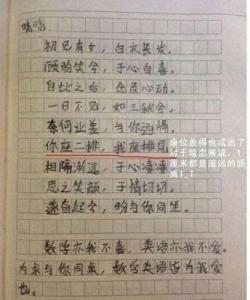 初见有女，白衣长发。
顾盼笑兮，予心自喜。
自此之始，念及心动。
一日不见，如三秋兮。
奈何世差，与你远隔。
你座二排，我座排尾。
相隔渐远，予心凄凄。
思之笑颜，予情切切。
遂奋起兮，盼与你同坐。
数学亦我不喜，英语亦我不爱。
为求与你同桌，数学英语皆为我爱
也。
座位差得也忒远了
对于暗恋来说，1
厘米都是遥远的距
离T_T